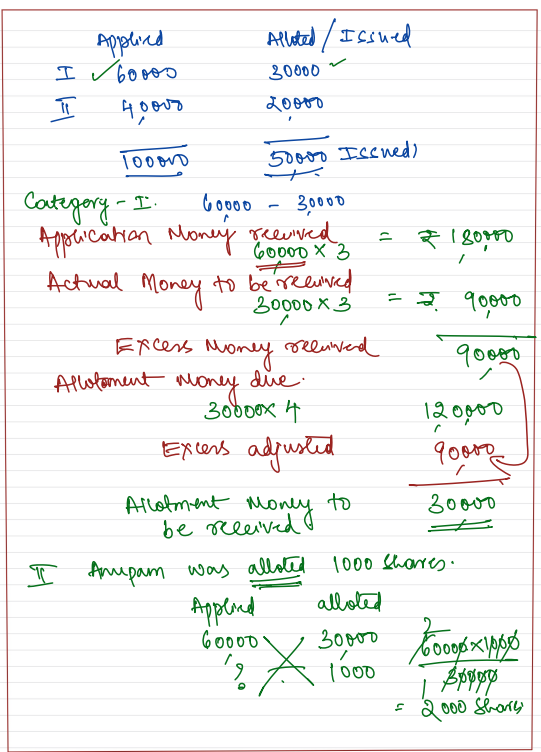 Applied Alloted / Issued
I ✓ 60000 30000 ✓
II 40,000 20000
100000 50000 Issued)
Category - I. 60000 - 30000
Application Money received = ₹ 180000
60000 × 3
Actual Money to be received
30000 × 3 = ₹ 90000
Excess Money received 90000
Allotment Money due.
30000 × 4 120000
Excess adjusted 90000
Allotment Money to 30000
be received
II Anupam was alloted 1000 shares.
Applied alloted
60000 30000 2 60000 × 1000
? 1000 1 30000
= 2000 shares